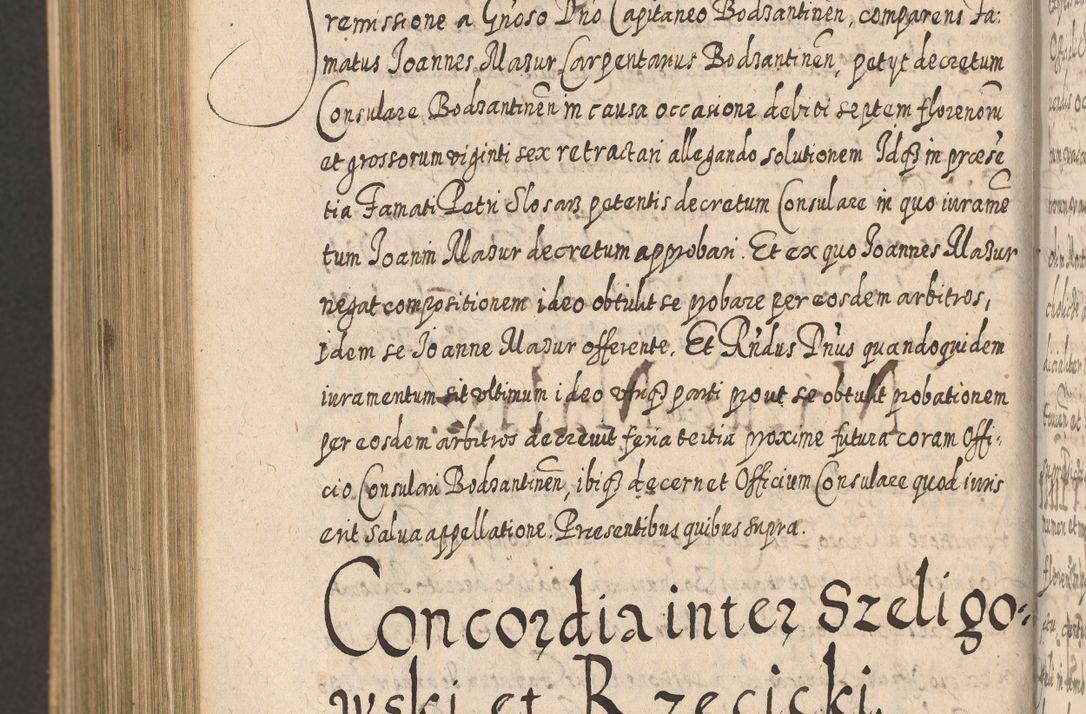 remissione a Gnōso Dnō Capitaneo Bodzantinēn, comparens Fa:
matus Joannes Mazur Carpentarius Bodzantinēn, petyt decretum
Consulare Bodzantinēn in causa occasione debiti septem florenorū
et grossorum viginti sex retractari allegando solutionem Idqȝ in præsē
tia Famati Petri Slosarz petentis decretum Consulare in quo iuramē
tum Joanni Mazur decretum approbari. Et ex quo Joannes Mazur
negat compositionem ideo obtulit se probare per eosdem arbitros,
idem se Joanne Mazur offerente. Et Rñdus Dñus quandoquidem
iuramentum sit ultimum ideo utriqȝ parti prout se obtulit probationem
per eosdem arbitros decrevit feria tertia proxime futura coram Offi:
cio Consulari Bodzantinēn, ibiqȝ decernet Officium Consulare quod iuris
erit salva appellatione. Præsentibus quibus supra.
Concordia inter Szeligo:
wski et Rzecicki.